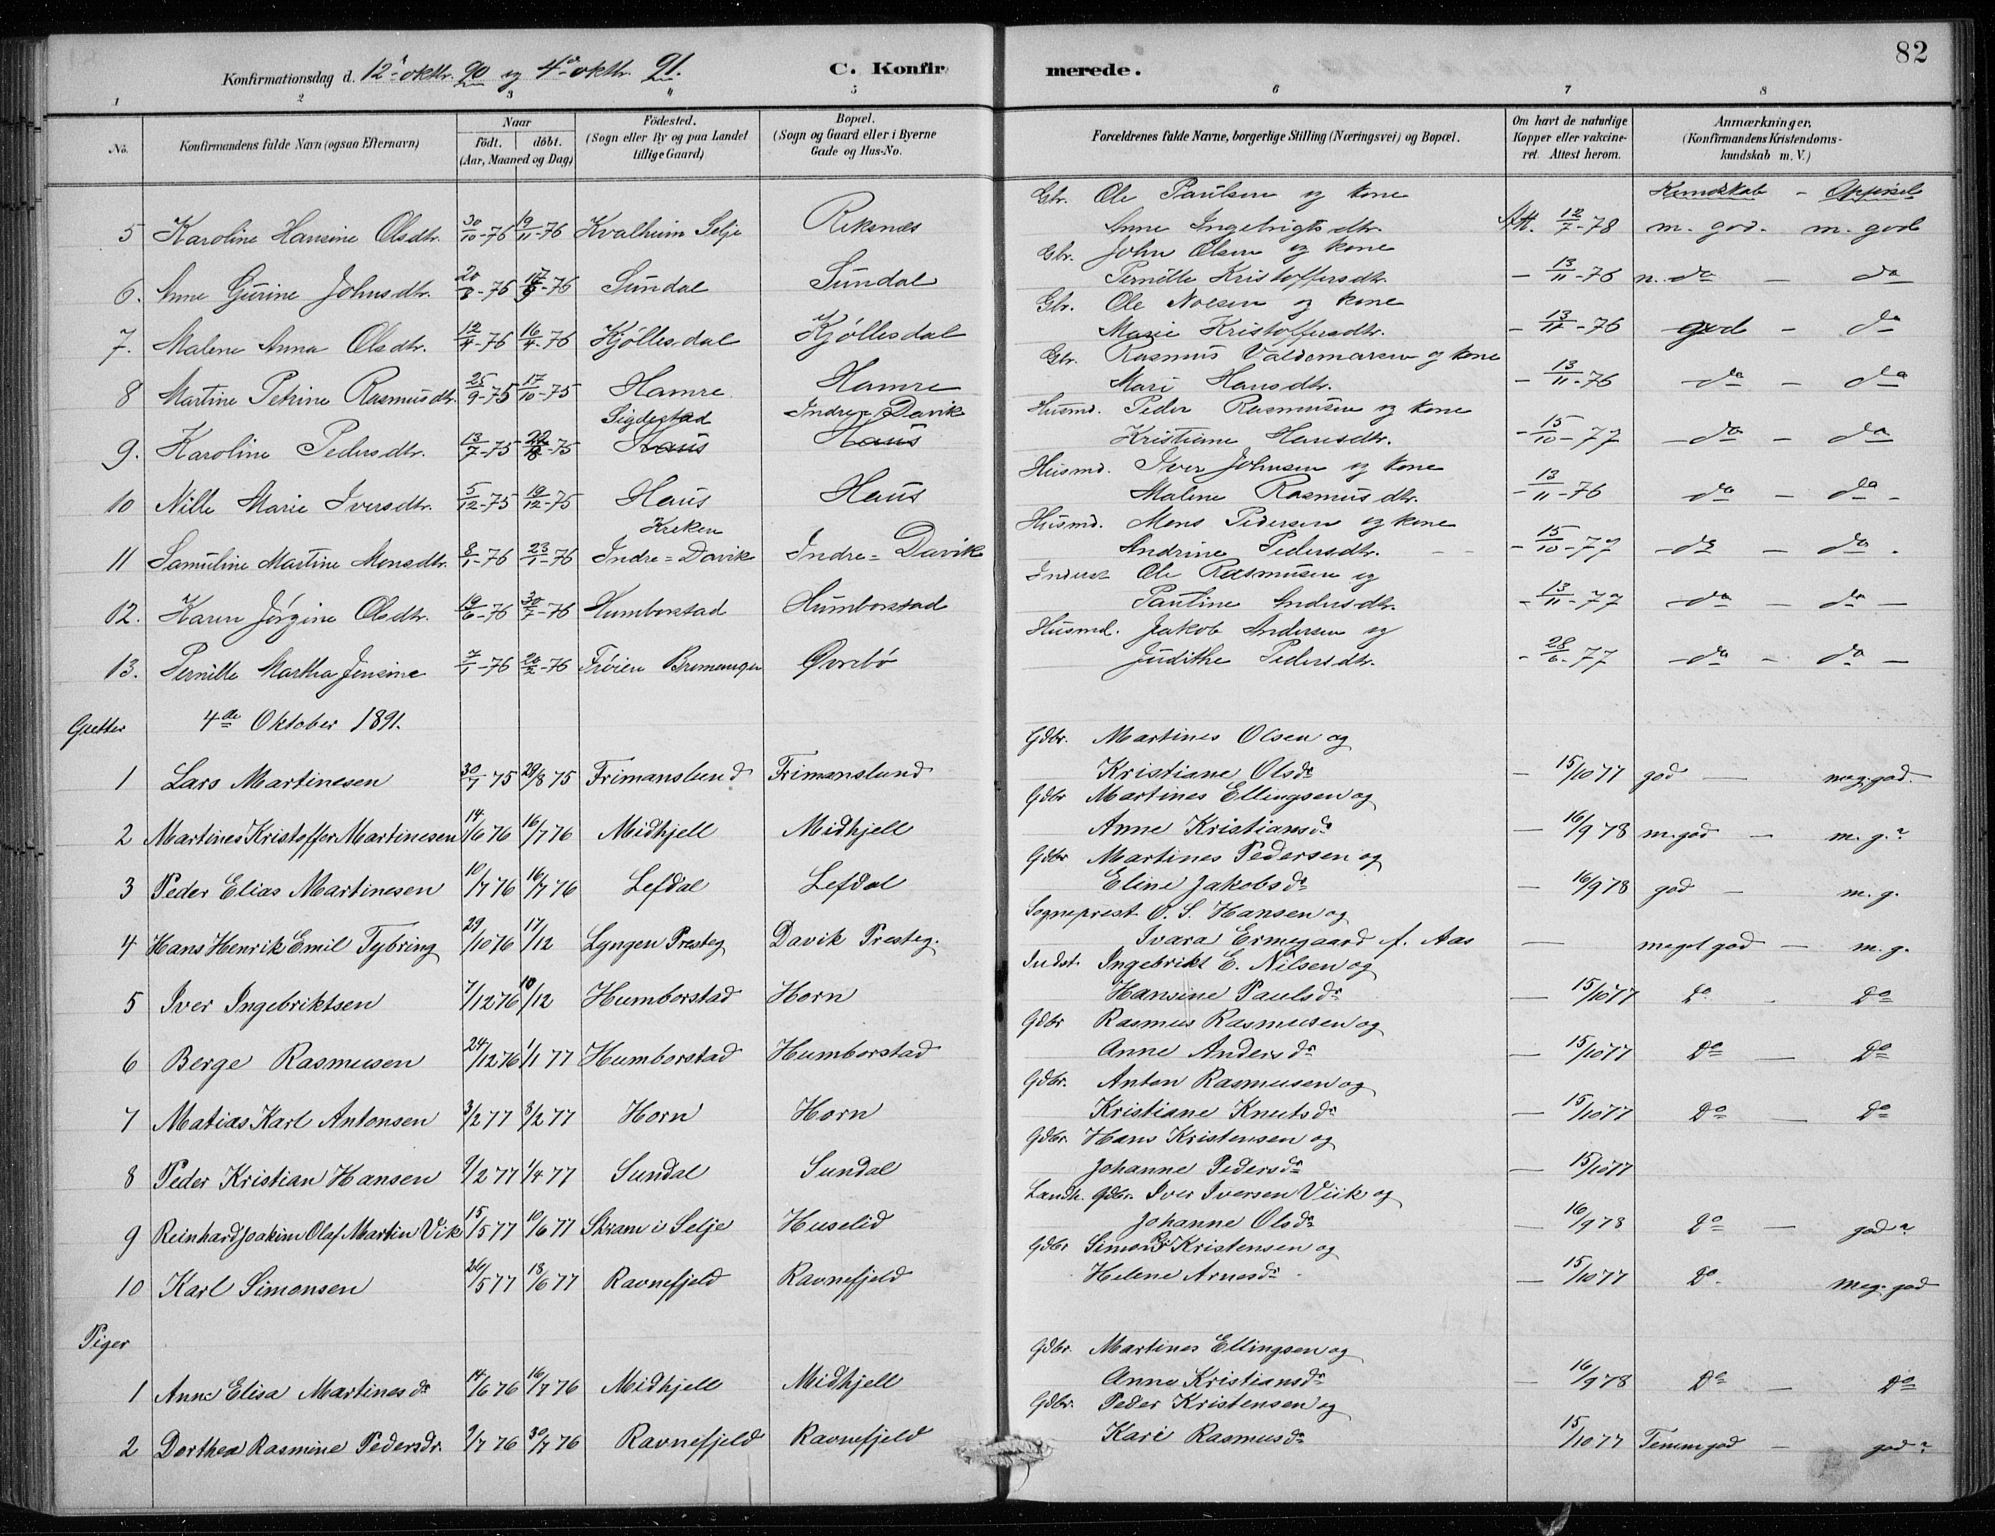 82
Konfirmationsdag d. 12te oktbr. 90 og 4de oktbr. 91. C. Konfirmerede.
1 2 3 4 5 6 7 8
No. Konfirmandens fulde Navn (ogsaa Efternavn) Naar födt. döbt. (Aar, Maaned og Dag) Födested. (Sogn eller By og paa Landet tillige Gaard) Bopæl. (Sogn og Gaard eller i Byerne Gade og Hus-No. Forældrenes fulde Navne, borgerlige Stilling (Næringsvei) og Bopæl. Om havt de naturlige Kopper eller vakcineret. Attest herom. Anmærkninger. (Konfirmandens Kristendomskundskab m. V.)
Gbr. Ole Paulsen og kone Kundskab - Opførsel
5 Karoline Hansine Olsdtr. 30/10-76 19/11-76 Kvalheim Selje Reksnæs Anne Ingebrigtsdtr. Att. 12/7-78 m. god. m. god
Gbr. John Olsen og kone
6. Anne Gurine Johnsdtr. 20/8-76 17/9-76 Sundal Sundal Pernille Kristoffersdtr. - 13/11-76 n. do - do
Gbr. Ole Nolsen og kone
7. Malene Anna Olsdtr. 12/4-76 16/4-76 Kjöllesdal Kjöllesdal Marie Kristoffersdtr. - 13/11-76 god - do
Gbr. Rasmus Valdemarsen og kone
8 Martine Petrine Rasmusdtr. 25/9-75 17/10-75 Hamre Hamre Mari Hansdtr. - 13/11-76 do - do
Sigdestad Indre Davik Husmd. Peder Rasmusen og kone
9. Karoline Pedersdtr. 13/7-75 22/8-75 Haus Haus Kristiane Hansdtr. - 15/10-77 - do - do
Husmd. Iver Johnsen og kone
10 Nille Marie Iversdtr. 5/12-75 19/12-75 Haus Haus Malene Rasmusdtr. - 13/11-76 do - do -
Kreken Husmd. Mons Pedersen og kone
11 Samuline Martine Monsdtr. 8/1-76 23/1-76 Indre=Davik Indre=Davik Andrine Pedersdtr. - 15/10-77 - do - do.
Inderst Ole Rasmusen og
12. Karen Jörgine Olsdtr. 19/6-76 30/7-76 Humborstad Humborstad Pauline Andersdtr. - 13/11-77 - do - do -
Husmd. Jakob Andersen og
13. Pernille Martha Jensine 7/1-76 20/2-76 Fröien Bremanger Øvrebö Judithe Pedersdtr. - 28/6-77 - do - do -
Gutter 4de Oktober 1891.
Gdbr. Martines Olsen og
1 Lars Martinesen 30/7 75 29/8 75 Frimanslund Frimanslund Kristiane Olsdr - 15/10 77 god - meg. god.
Gdbr Martines Ellingsen og
2 Martines Kristoffer Martinesen 14/6 76 16/7 76 Midhjell Midhjell Anne Kristiansdr - 16/9 78 m. god - m. g.?
Gdbr Martines Pedersen og
3 Peder Elias Martinesen 10/7 76 16/7 76 Lefdal Lefdal Eline Jakobsdr - 16/9 78 god - m. g.
Sogneprest O. S. Hansen og
4 Hans Henrik Emil Tybring 29/10 76 17/12 Lyngen Presteg Davik Presteg. Ivara Ermegaard f. Aas - meget god - m. g.
Indst. Ingebrikt E. Nilsen og
5 Iver Ingebriktsen 7/12 76 10/12 Humborstad Horn Hansine Paulsdr - 15/10 77 Do - Do
Gdbr Rasmus Rasmusen og
6 Berge Rasmusen 24/12 76 1/1 77 Humborstad Humborstad Anne Andersdr - 15/10 77 Do - Do
Gdbr. Anton Rasmusen og
7 Matias Karl Antonsen 3/2 77 8/2 77 Horn Horn Kristiane Knutsdr - 15/10 77 Do Do
Gdbr. Hans Kristensen og
8 Peder Kristian Hansen 9/2 77 1/4 77 Sundal Sundal Johanne Pedersdr - 15/10 77
Landh. Gdbr. Iver Iversen Viik og
9 Reinhard Joakim Olaf Martin Vik 15/5 77 10/6 77 Skram i Selje Huselid Johanne Olsdr - 16/9 78 Do - god?
Gdbr Simon Kristensen og
10 Karl Simonsen 26/5 77 18/6 77 Ravnefjeld Ravnefjeld Helene Arnesdr - 15/10 77 Do. meg. god
Piger Gdbr. Martines Ellingsen og
1 Anne Elisa Martinesdr 14/6 76 16/7 76 Midhjell Midhjell Anne Kristiansdr - 16/9 78 Do - Do
Gdbr. Peder Kristensen og
2 Dorthea Rasmine Pedersdr. 9/7 76 30/7 76 Ravnefjeld Ravnefjeld Kari Rasmusdr 15/10 77 Temm god - god?